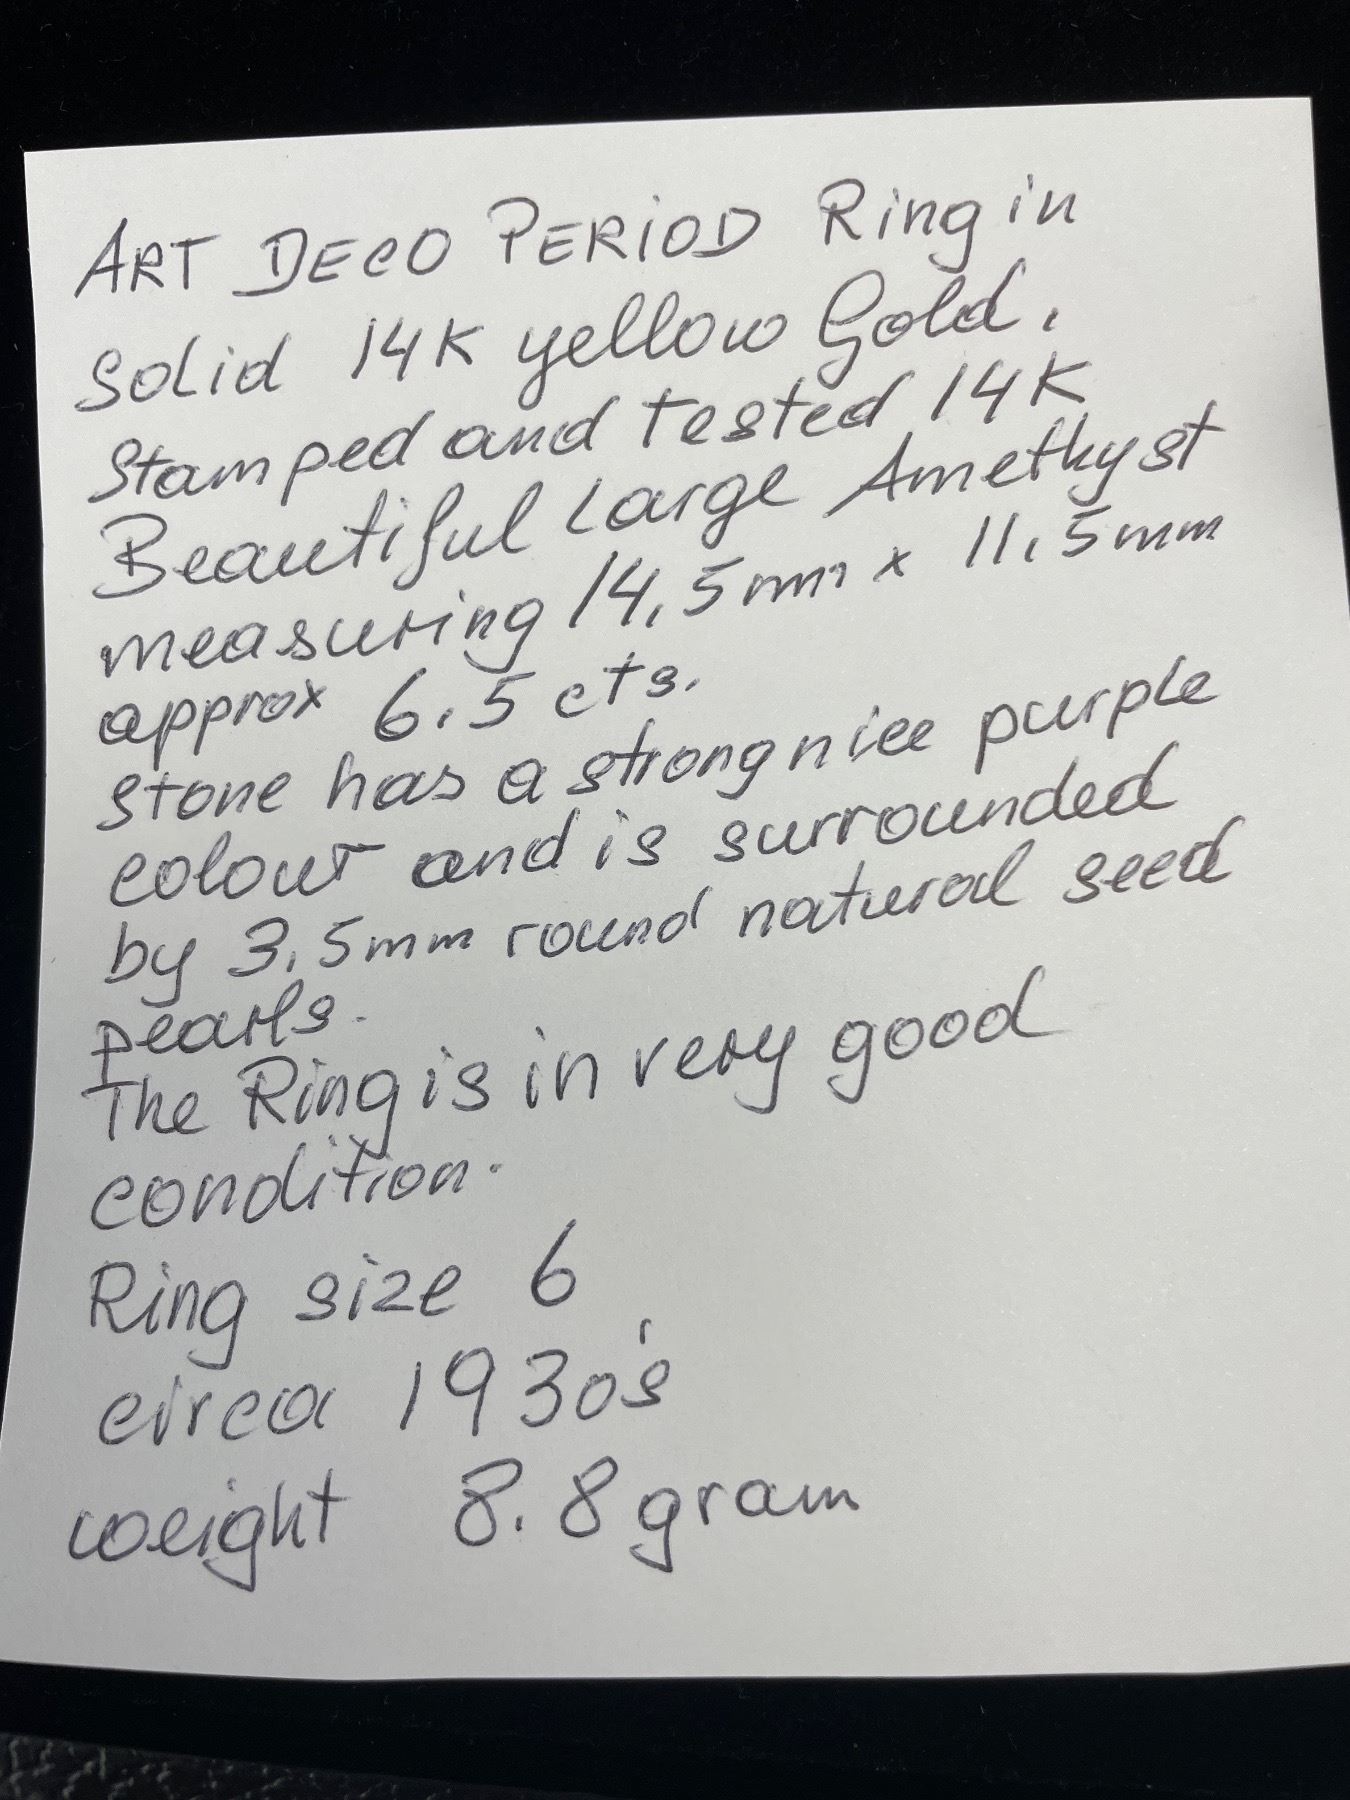 ART DECO PERIOD Ring in
Solid 14K yellow Gold.
Stamped and tested 14K
Beautiful Large Amethyst
measuring 14,5mm x 11,5mm
approx 6.5 cts.
stone has a strong nice purple
colour and is surrounded
by 3,5mm round natural seed
pearls.
The Ring is in very good
condition.
Ring size 6
circa 1930's
weight 8.8 gram